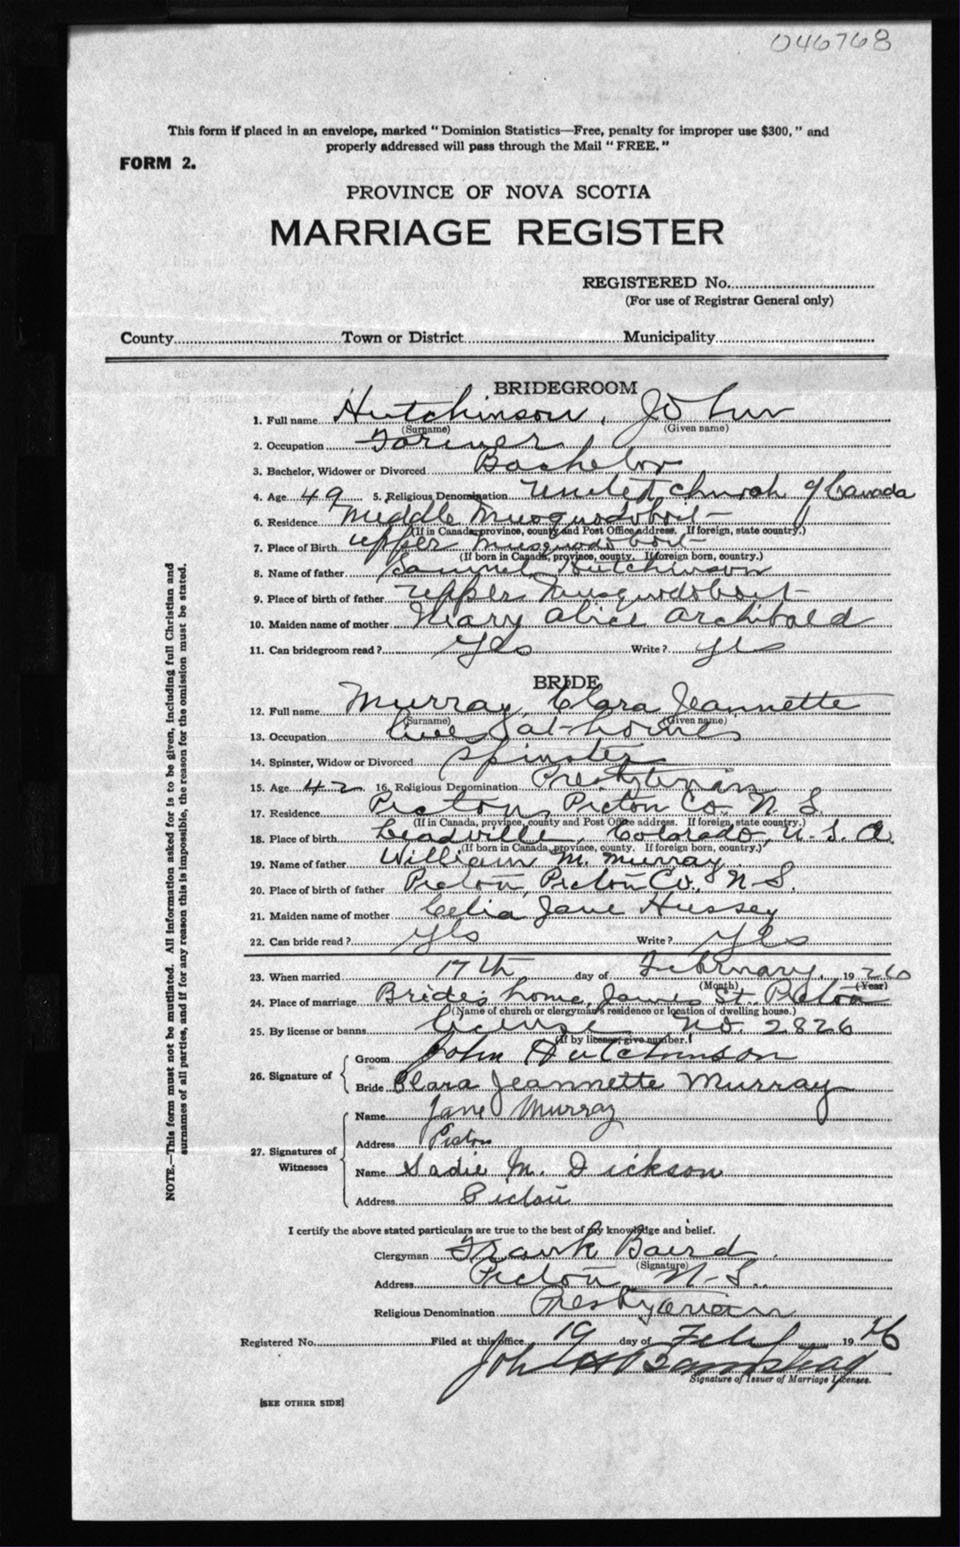 046768
This form if placed in an envelope, marked "Dominion Statistics—Free, penalty for improper use $300," and
properly addressed will pass through the Mail "FREE."
FORM 2.
PROVINCE OF NOVA SCOTIA
MARRIAGE REGISTER
REGISTERED No.
(For use of Registrar General only)
County Town or District Municipality
BRIDEGROOM
1. Full name Hutchinson, John
(Surname) (Given name)
2. Occupation Farmer
3. Bachelor, Widower or Divorced Bachelor
4. Age 49 5. Religious Denomination United Church of Canada
6. Residence Middle Musquodoboit
(If in Canada, province, county and Post Office address. If foreign, state country.)
7. Place of Birth Upper Musquodoboit
(If born in Canada, province, county. If foreign born, country.)
8. Name of father Samuel Hutchinson
9. Place of birth of father Upper Musquodoboit
10. Maiden name of mother Mary Alice Archibald
11. Can bridegroom read? Yes Write? Yes
BRIDE
12. Full name Murray, Clara Jeannette
(Surname) (Given name)
13. Occupation at home
14. Spinster, Widow or Divorced Spinster
15. Age 42 16. Religious Denomination Presbyterian
17. Residence Pictou, Pictou Co., N. S.
(If in Canada, province, county and Post Office address. If foreign, state country.)
18. Place of birth Leadville, Colorado, U. S. A.
(If born in Canada, province, county. If foreign born, country.)
19. Name of father William M. Murray
20. Place of birth of father Pictou, Pictou Co., N-S.
21. Maiden name of mother Celia Jane Hussey
22. Can bride read? Yes Write? Yes
23. When married 17th day of February, 1926
(Month) (Year)
24. Place of marriage Bride's home, James St. Pictou
(Name of church or clergyman's residence or location of dwelling house.)
25. By license or banns License No. 2826
(If by license, give number.)
26. Signature of
Groom John Hutchinson
Bride Clara Jeannette Murray
27. Signatures of Witnesses
Name Jane Murray
Address Pictou
Name Sadie M. Dickson
Address Pictou
I certify the above stated particulars are true to the best of my knowledge and belief.
Clergyman Frank Baird
(Signature)
Address Pictou N-S.
Religious Denomination Presbyterian
Registered No. Filed at this office 19 day of Feby 1926
John
Signature of Issuer of Marriage Licenses.
[SEE OTHER SIDE]
NOTE.—This form must not be mutilated. All information asked for is to be given, including full Christian and
surnames of all parties, and if for any reason this is impossible, the reason for the omission must be stated.